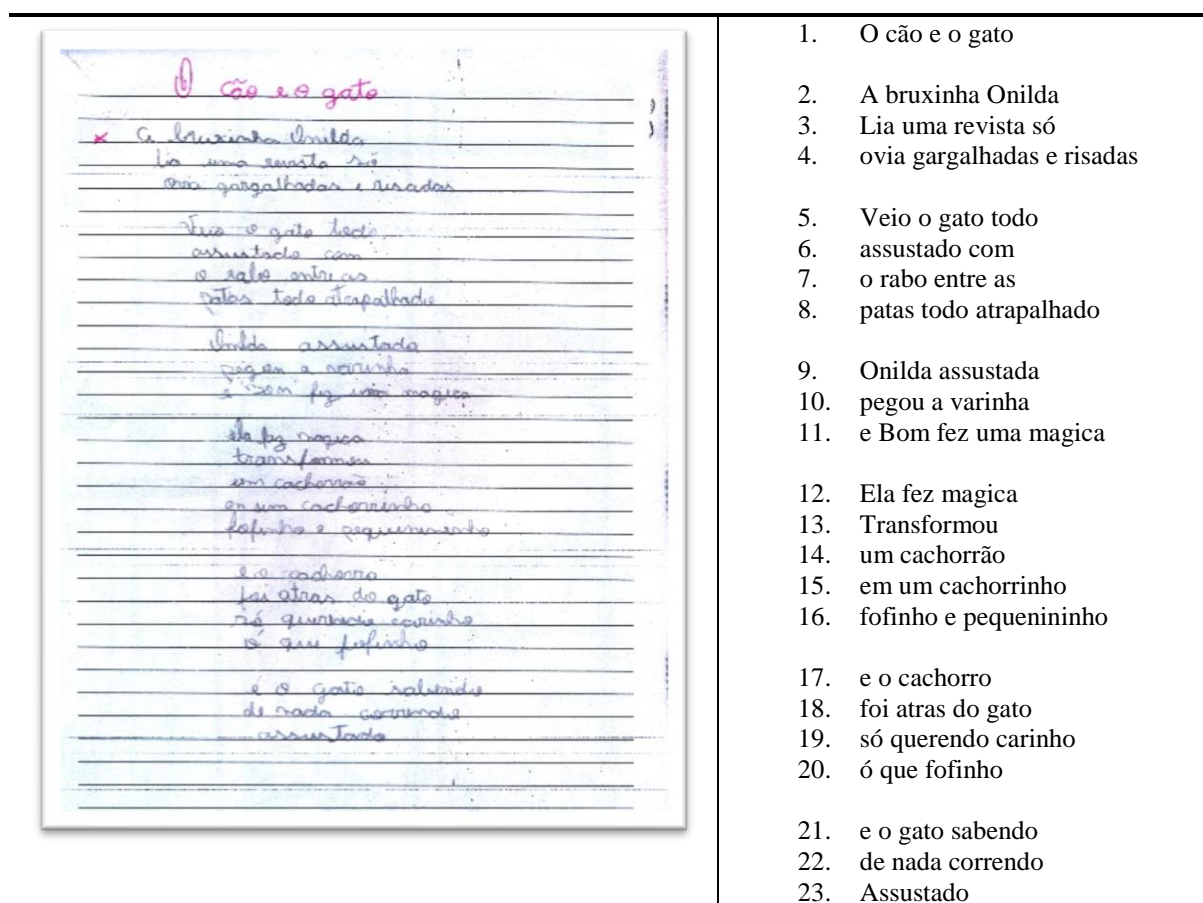 O cão e o gato
A bruxinha Onilda
lia uma revista só
ovia gargalhadas e risadas
Veio o gato todo
assustado com
o rabo entre as
patas todo atrapalhado
Onilda assustada
pegou a varinha
e Bom fez uma magica
ela fez magica
transformou
um cachorrão
em um cachorrinho
fofinho e pequenininho
e o cachorro
foi atras do gato
só querendo carinho
ó que fofinho
e o gato sabendo
de nada correndo
assustado
1. O cão e o gato
2. A bruxinha Onilda
3. Lia uma revista só
4. ovia gargalhadas e risadas
5. Veio o gato todo
6. assustado com
7. o rabo entre as
8. patas todo atrapalhado
9. Onilda assustada
10. pegou a varinha
11. e Bom fez uma magica
12. Ela fez magica
13. Transformou
14. um cachorrão
15. em um cachorrinho
16. fofinho e pequenininho
17. e o cachorro
18. foi atras do gato
19. só querendo carinho
20. ó que fofinho
21. e o gato sabendo
22. de nada correndo
23. Assustado